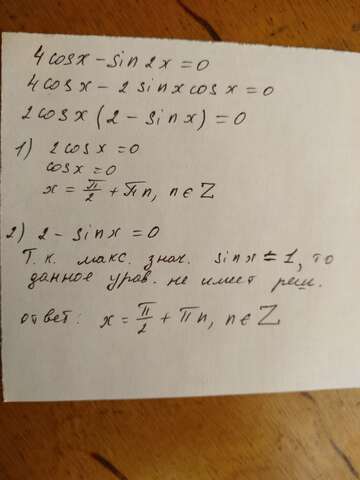 4cosx - sin2x = 0
4cosx - 2sinxcosx = 0
2cosx(2 - sinx) = 0
1) 2cosx = 0
cosx = 0
x = π/2 + πn, n ∈ Z
2) 2 - sinx = 0
Т.к. макс. знач. sinx = 1, то
данное урав. не имеет реш.
ответ: x = π/2 + πn, n ∈ Z